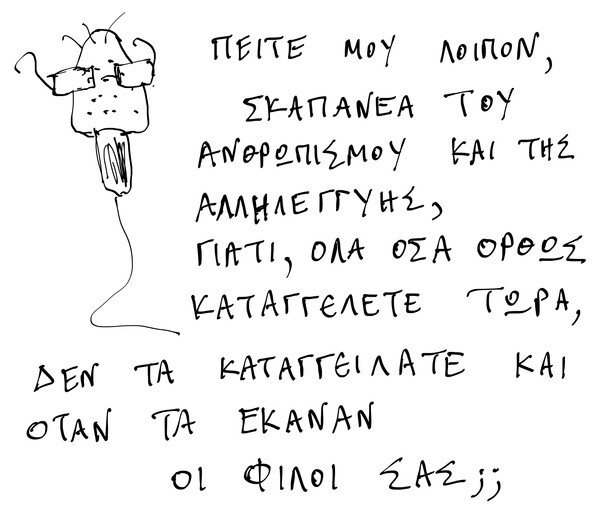 ΠΕΙΤΕ ΜΟΥ ΛΟΙΠΟΝ,
ΣΚΑΠΑΝΕΑ ΤΟΥ
ΑΝΘΡΩΠΙΣΜΟΥ ΚΑΙ ΤΗΣ
ΑΛΛΗΛΕΓΓΥΗΣ,
ΓΙΑΤΙ, ΟΛΑ ΟΣΑ ΟΡΘΩΣ
ΚΑΤΑΓΓΕΛΕΤΕ ΤΩΡΑ,
ΔΕΝ ΤΑ ΚΑΤΑΓΓΕΙΛΑΤΕ ΚΑΙ
ΟΤΑΝ ΤΑ ΕΚΑΝΑΝ
ΟΙ ΦΙΛΟΙ ΣΑΣ;;